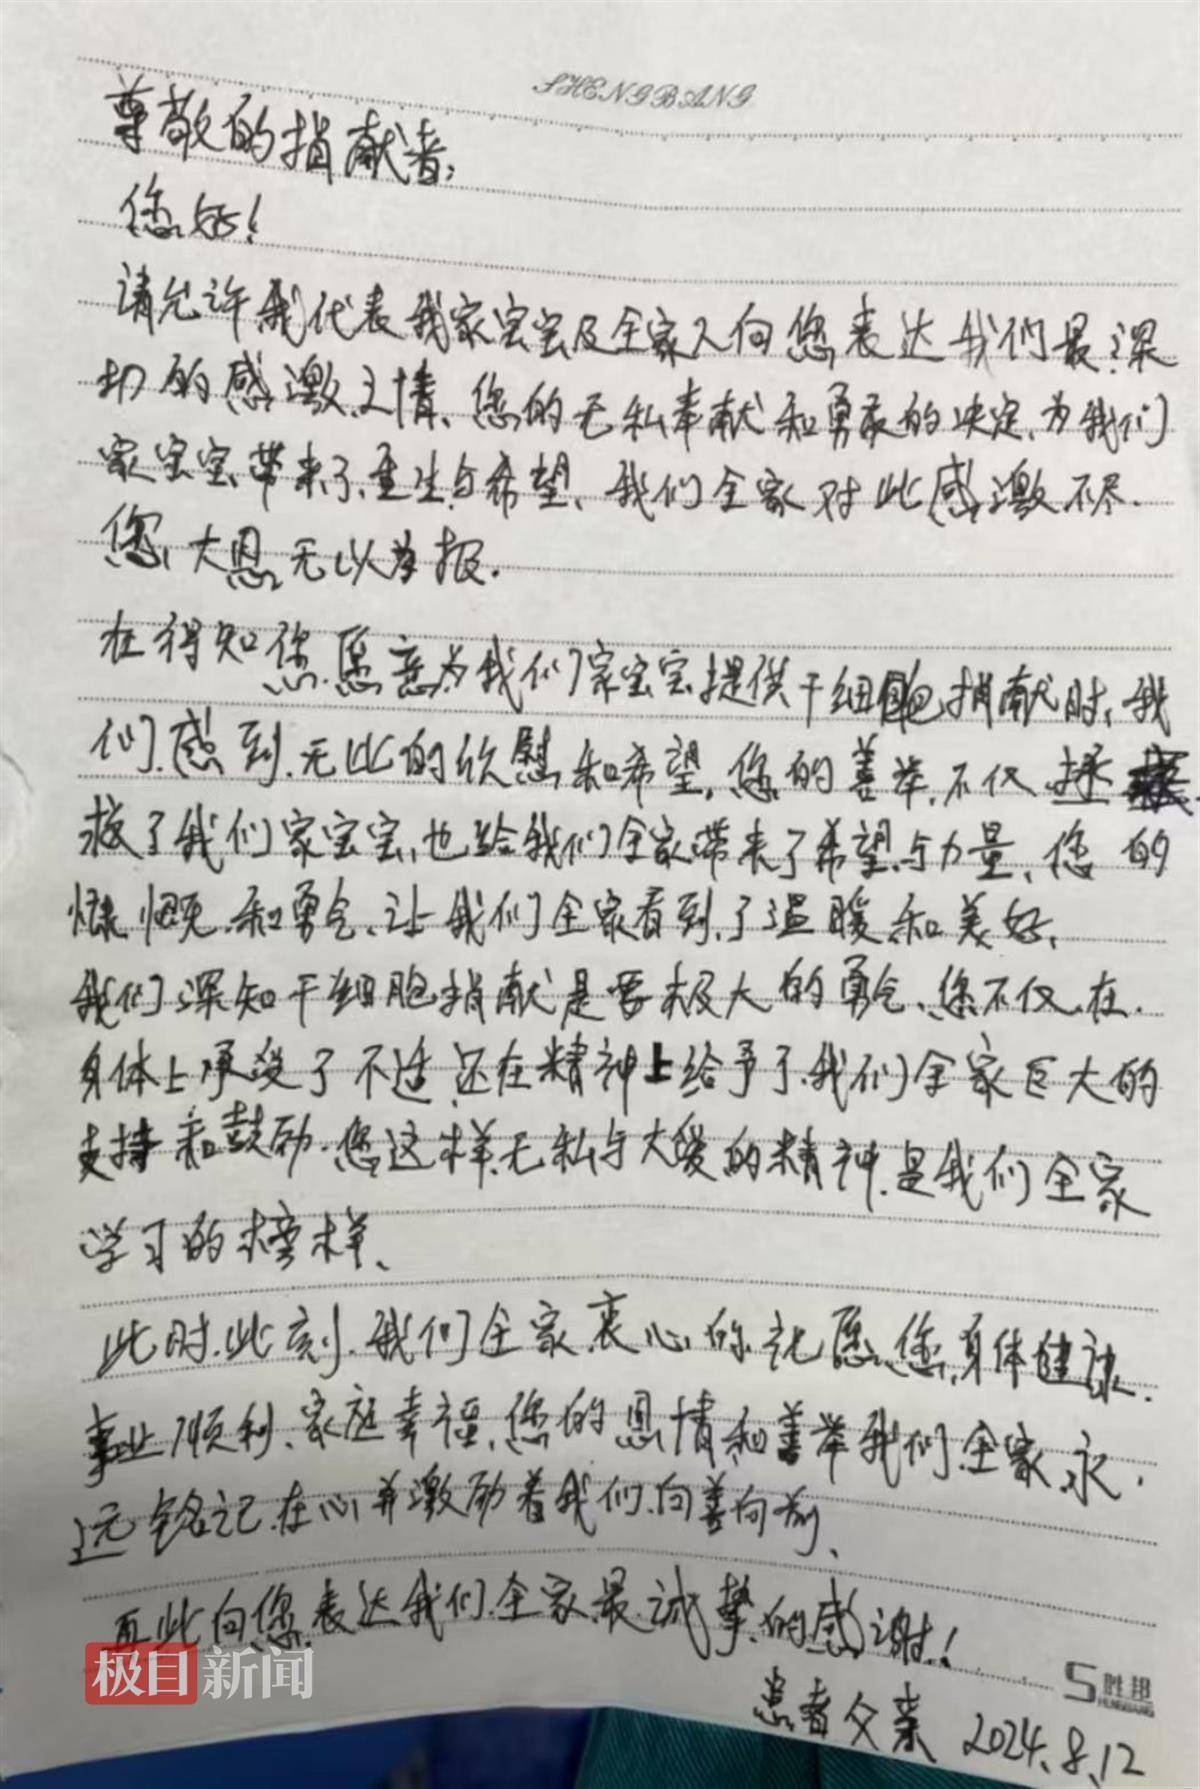 SHENGBANG
尊敬的捐献者:
您好!
请允许我代表我家宝宝及全家人向您表达我们最深
切的感激之情、您的无私奉献和勇敢的决定、为我们
家宝宝带来了重生与希望、我们全家对此感激不尽.
您大恩无以为报.
在得知您愿意为我们家宝宝提供干细胞捐献时、我
们感到无比的欣慰和希望,您的善举,不仅拯
救了我们家宝宝,也给我们全家带来了希望与力量、您的
慷慨和勇气、让我们全家看到了温暖和美好、
我们深知干细胞捐献是要极大的勇气、您不仅在
身体上承受了不适还在精神上给予了我们全家巨大的
支持和鼓励.您这样无私与大爱的精神是我们全家
学习的榜样、
此时此刻我们全家衷心的祝愿您身体健康.
事业顺利、家庭幸福、您的恩情和善举我们全家永
远铭记在心并激励着我们向善向前、
再此向您表达我们全家最诚挚的感谢!
极目新闻
S胜邦
SHENGBANG
患者父亲 2024.8.12